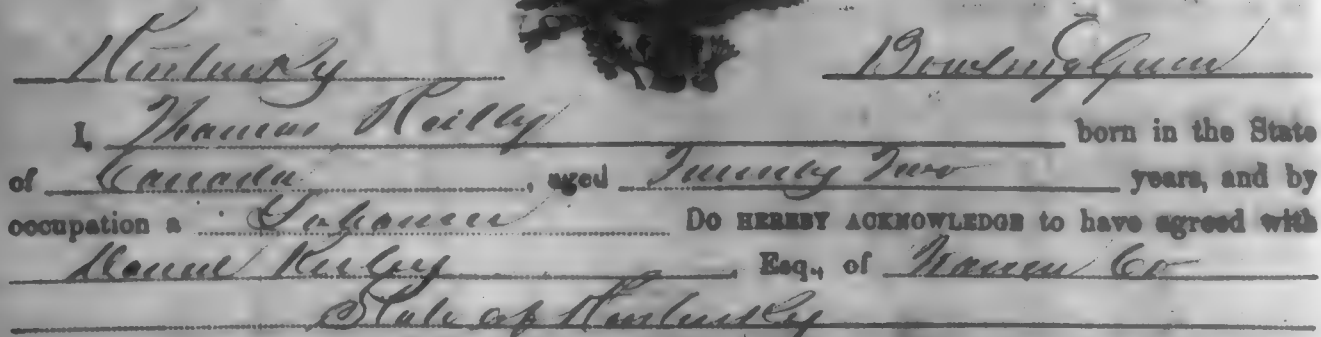 Kentucky Bowling Green
I, Thomas Reilly born in the State
of Canada, aged Twenty Two years, and by
occupation a Laborer Do HEREBY ACKNOWLEDGE to have agreed with
Kirby, Esq., of Warren Co
State of Kentucky